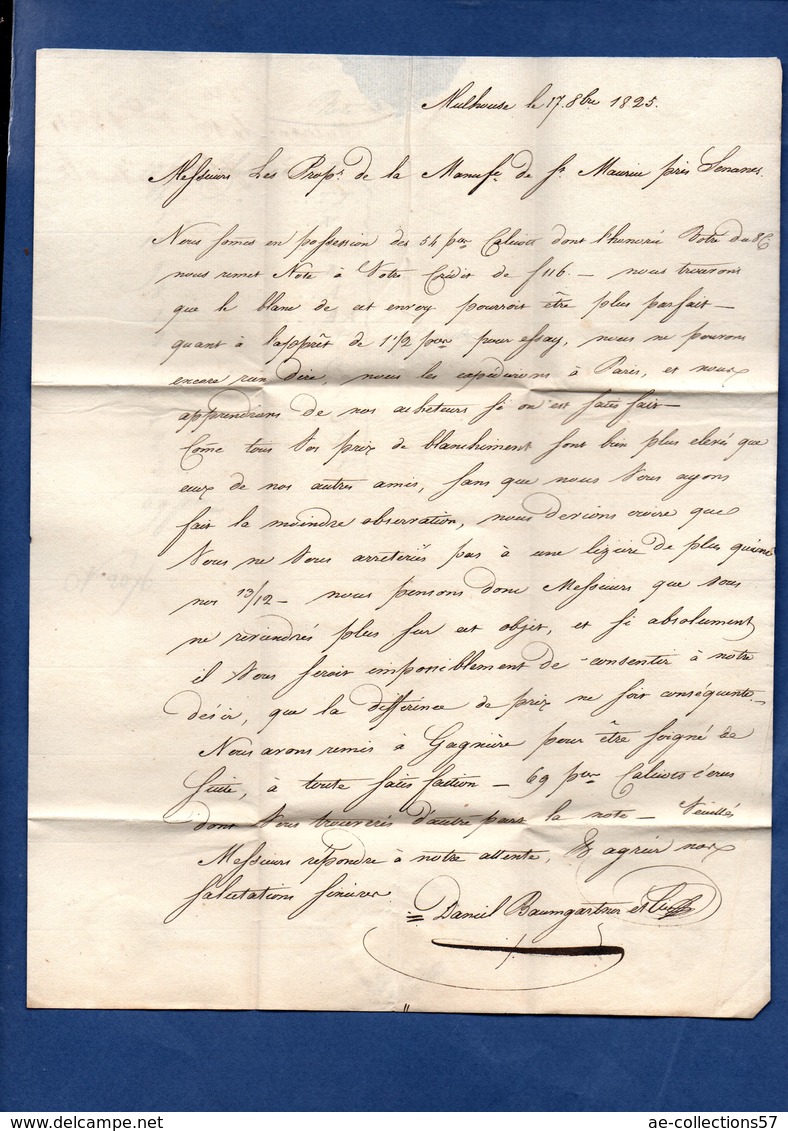 Mulhouse le 17. 8bre 1825.
Messieurs Les Props. de la Manufe. de St. Maurice près Senones.
Nous somes en possession des 54 pces Calicots dont l'honorée Votre du 8 Ct
nous remet Note à Votre Crédit de f 116. — nous trouvons
que le blanc de cet envoy pourroit être plus parfait —
quant à l'apprêt de 1 1/2 pces pour essay, nous ne pouvons
encore rien dire, nous les expédierons à Paris, et nous
apprendrons de nos acheteurs si on est satisfait —
Come tous Vos prix de blanchiment sont bien plus elevés que
ceux de nos autres amis, sans que nous Vous ayons
fait la moindre observation, nous devions croire que
Vous ne Vous arreteriés pas à une lizière de plus qu'à
nos 13/12 — nous pensons donc Messieurs que vous
ne reviendrés plus sur cet objet, et si absolument
il Vous seroit impossiblement de consentir à notre
désir, que la différence de prix ne soit conséquente. —
Nous avons remis à Gagnière pour être soigné de
suite, à toute satisfaction — 69 pces Calicots écrus
dont Vous trouverés d'autre part la note — Veuillés
Messieurs répondre à notre attente, & agréer nos
salutations sincères
Daniel Baumgartner et Cie
ae-collections57